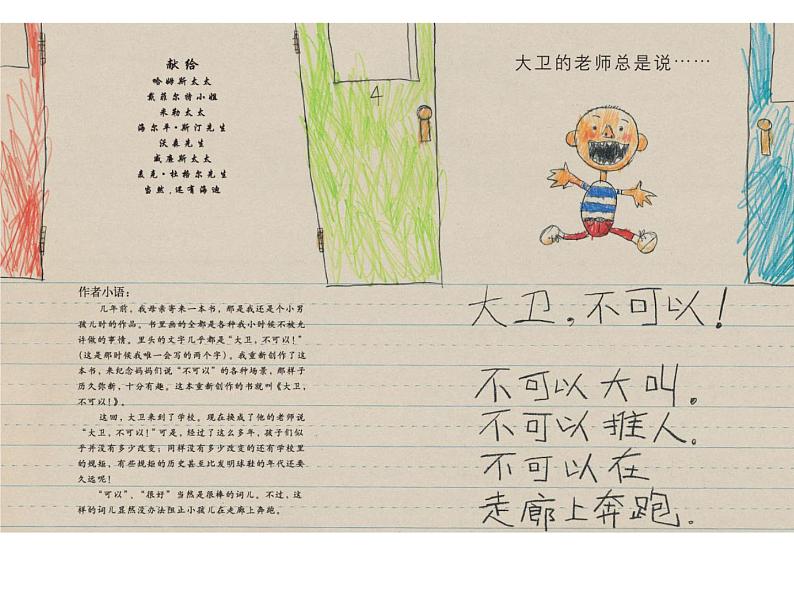 献给
哈姆斯太太
戴菲尔特小姐
米勒太太
海尔平·斯汀先生
沃森先生
威廉斯太太
麦克·杜格尔先生
当然,还有海迪
4
作者小语:
几年前,我母亲寄来一本书,那是我还是个小男
孩儿时的作品。书里画的全都是各种我小时候不被允
许做的事情。里头的文字几乎都是“大卫,不可以!”
(这是那时候我唯一会写的两个字)。我重新创作了这
本书,来纪念妈妈们说“不可以”的各种场景,那样子
历久弥新,十分有趣。这本重新创作的书就叫《大卫,
不可以!》。
这回,大卫来到了学校。现在换成了他的老师说
“大卫,不可以!”可是,经过了这么多年,孩子们似
乎并没有多少改变;同样没有多少改变的还有学校里
的规矩,有些规矩的历史甚至比发明球鞋的年代还要
久远呢!
“可以”、“很好”当然是很棒的词儿。不过,这
样的词儿显然没办法阻止小孩儿在走廊上奔跑。
大卫的老师总是说……
大卫,不可以!
不可以大叫。
不可以推人。
不可以在
走廊上奔跑。